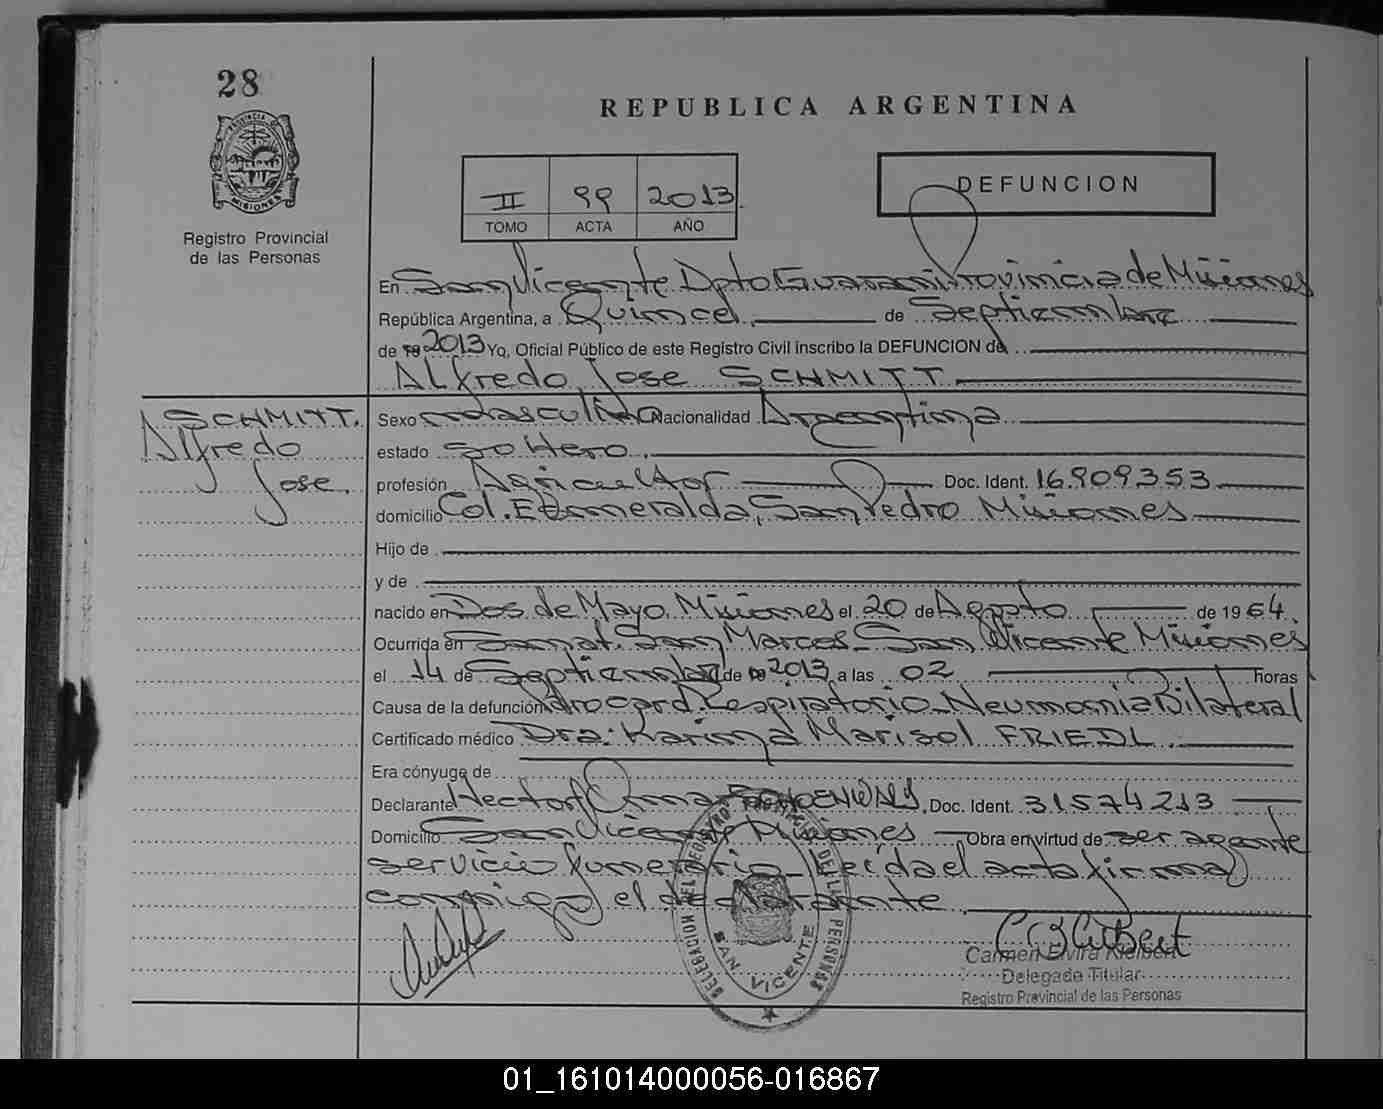 28
PROVINCIA DE
MISIONES
Registro Provincial
de las Personas
REPUBLICA ARGENTINA
II 99 2013
TOMO ACTA AÑO
DEFUNCION
En San Vicente Dpto Guarani Provinicia de Misiones
República Argentina, a Quince de Septiembre
de 19 2013 Yo, Oficial Público de este Registro Civil inscribo la DEFUNCION de
Alfredo Jose SCHMITT
SCHMITT.
Alfredo
Jose
Sexo masculino Nacionalidad Argentina
estado soltero
profesión Agricultor Doc. Ident. 16.909353
domicilio Col. Esmeralda, San Pedro Misiones
Hijo de
y de
nacido en Dos de Mayo Misiones el 20 de Agosto de 1964
Ocurrida en Sanat. San Marcos San Vicente Misiones
el 14 de Septiembre de 19 2013 a las 02 horas
Causa de la defunción Respiratorio-Neumonia Bilateral
Certificado médico Dra. Karina Marisol FRIEDL
Era cónyuge de
Declarante Hector Omar Doc. Ident. 31574213
Domicilio San Vicente Misiones Obra en virtud de ser agente
servicio funerario Leida el acta firma
conmigo el declarante
DELEGACION DEL REGISTRO PROVINCIAL DE LAS PERSONAS
SAN VICENTE
Carmen Elvira
Delegada Titular
Registro Provincial de las Personas
01_161014000056-016867